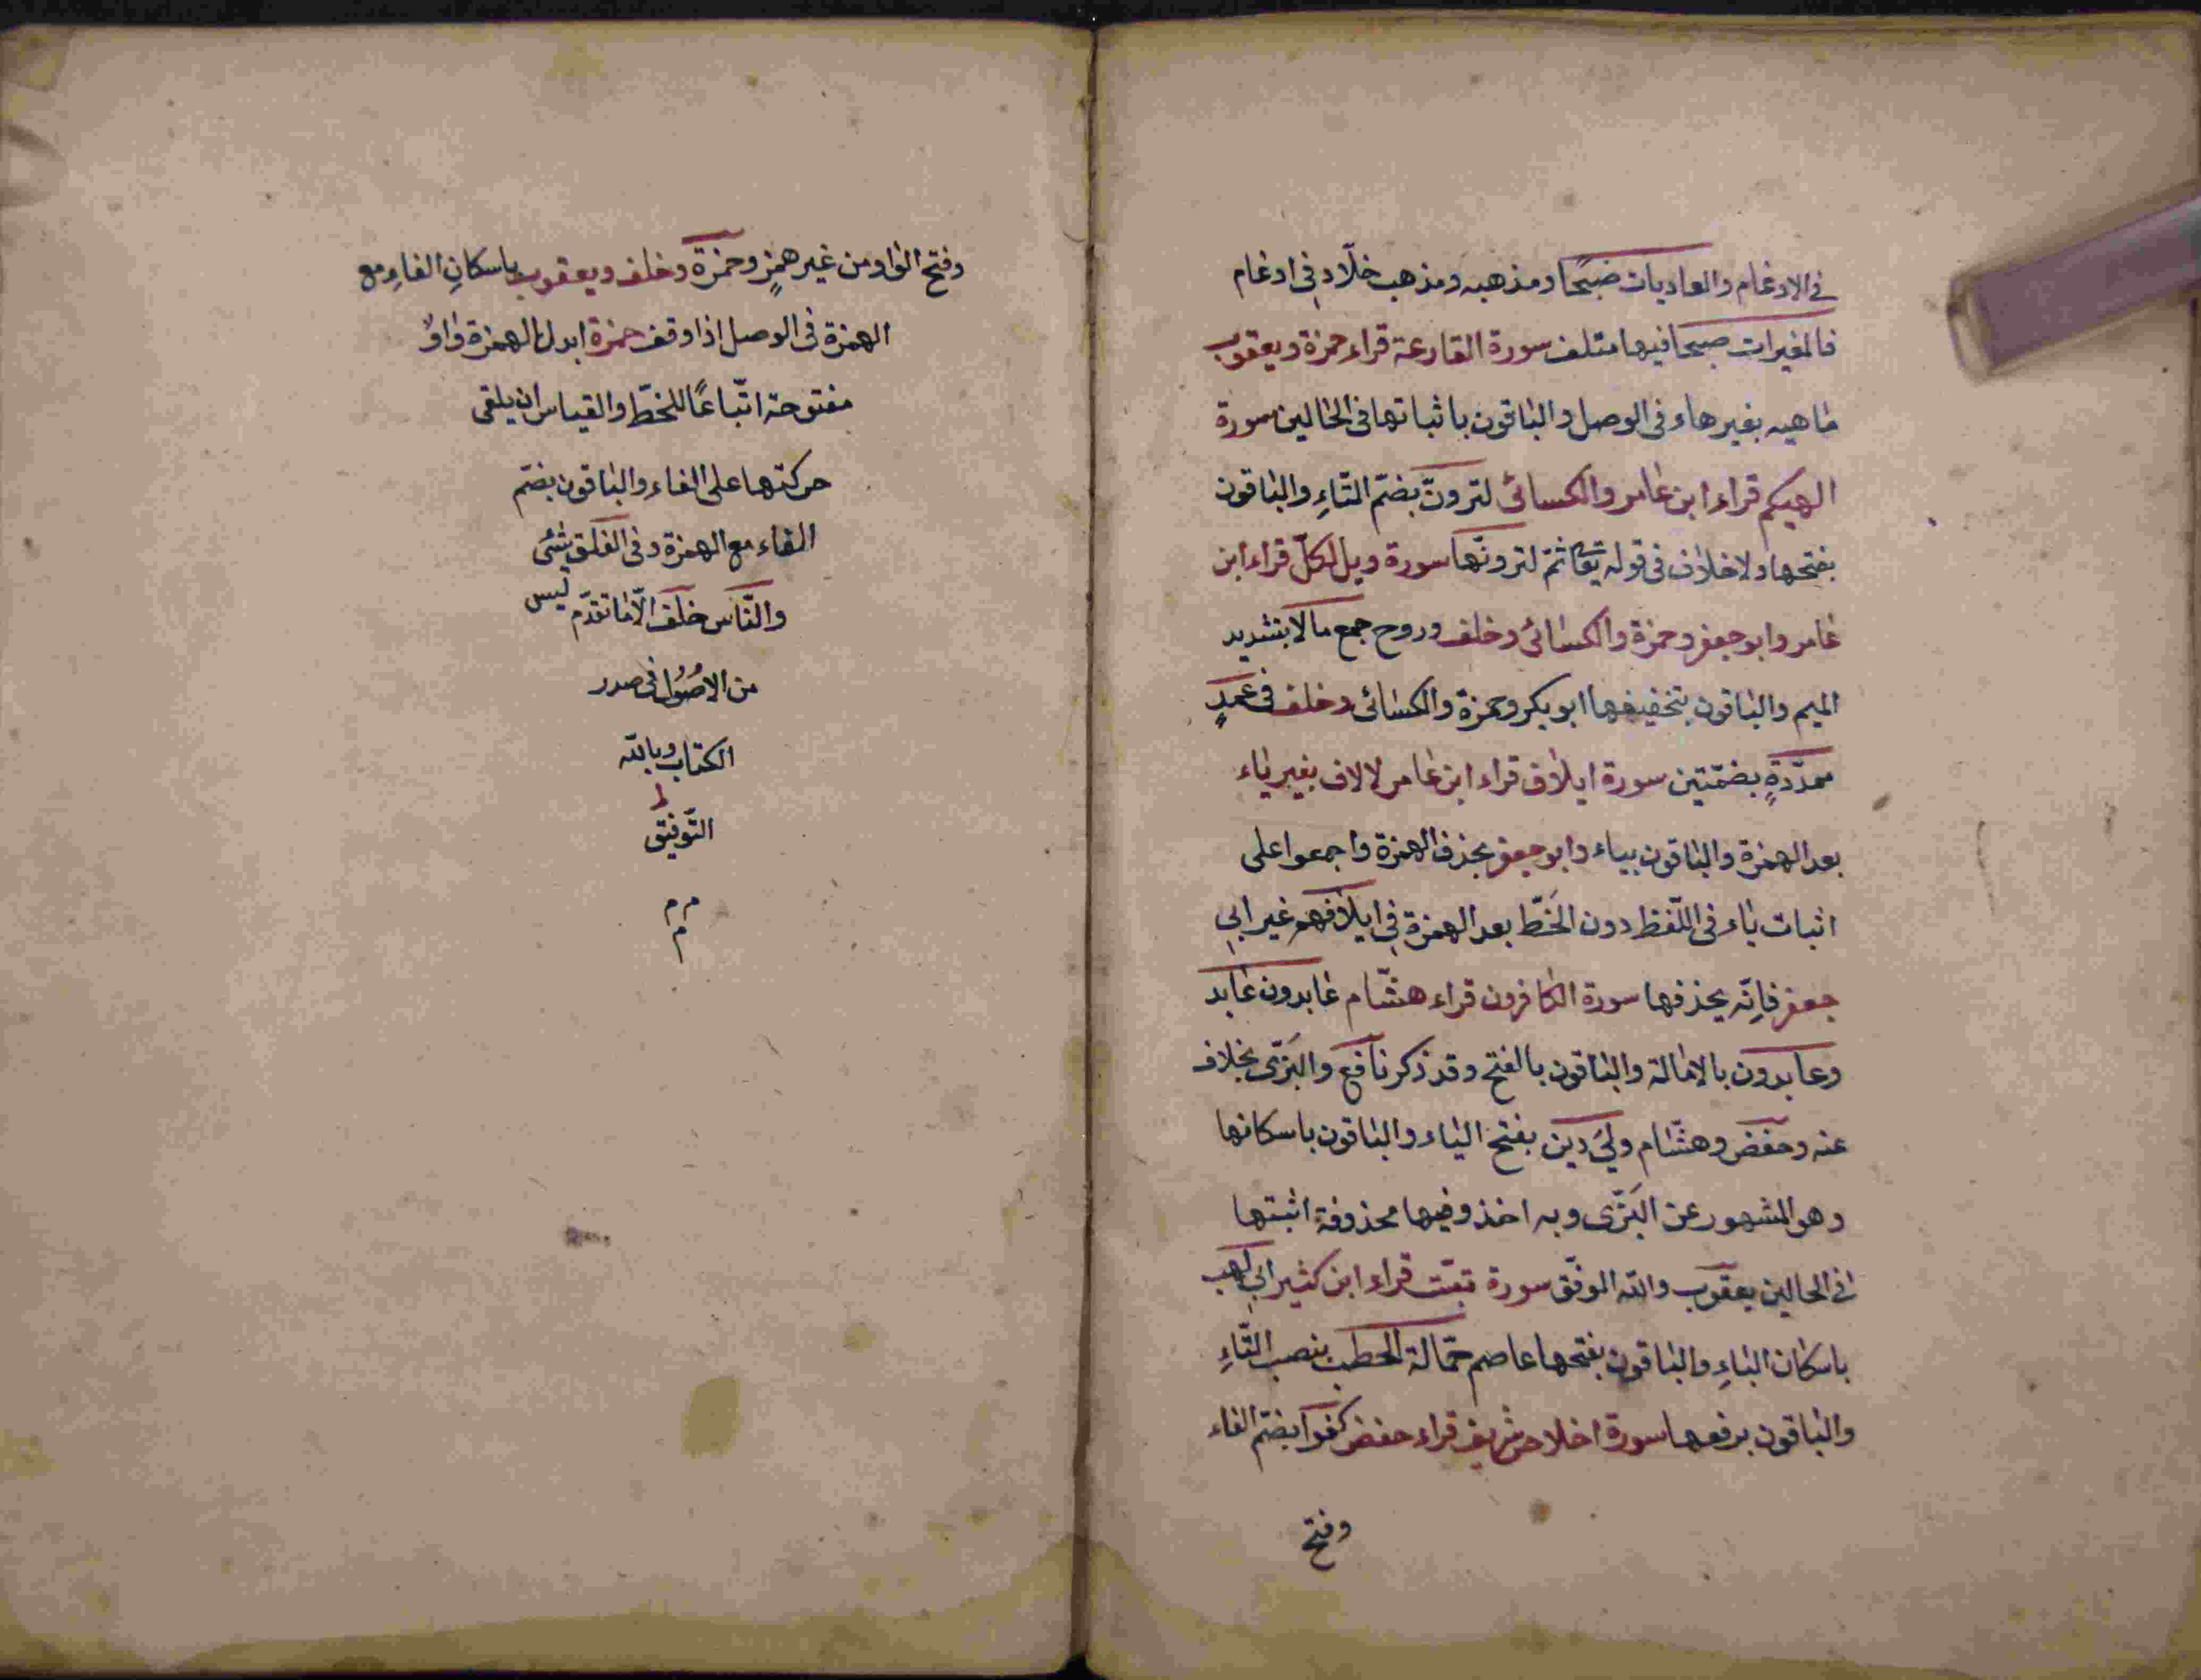 في الادغام والعاديات ضبحا ومذهبه ومذهب خلّاد في ادغام
فالمغيرات صبحا فيها متلف سورة القارعة قراء حمزة ويعقوب
ماهيه بغير هاء في الوصل والباقون باثباتها في الحالين سورة
الهيكم قراء ابن عامر والكسائى لترونّ بضمّ التّاءِ والباقون
بفتحها ولا خلاف في قوله تعا ثمّ لترونّها سورة ويل لكلّ قراء ابن
عامر وابو جعفر وحمزة والكسائى وخلف وروح جمع مالا بتشديد
الميم والباقون بتخفيفها ابو بكر وحمزة والكسائى وخلف في عمدٍ
ممدّدةٍ بضمّتين سورة ايلاف قراء ابن عامر لالاف بغير ياء
بعد الهمزة والباقون بياء وابو جعفر بحذف الهمزة واجمعوا على
اثبات ياء في اللّفظ دون الخَطّ بعد الهمزة في ايلافهم غير ابي
جعفر فاِنّه يحذفها سورة الكافرون قراء هشّام عابدون عابد
وعابدون بالامالة والباقون بالفتح وقد ذكر نافع والبَزّى بخلاف
عنه وحفص وهشّام ولِيَ دين بفتح الياء والباقون باسكانها
وهو المشهور عن البَزّى وبه اخذ وفيها محذوفة اثبتها
في الحالين يعقوب والله الموفّق سورة تبّت قراء ابن كثير ابي لهب
باسكان الباءِ والباقون بفتحها عاصم حمّالة الحطب بنصب التّاءِ
والباقون برفعها سورة اخلاص شريف قراء حفص كفوًا بضمّ الفاء
وفتح
وفتح الواو من غير همزٍ وحمزة وخلف ويعقوب باسكانِ الفاءِ مع
الهمزة في الوصل اذا وقف حمزة ابدل الهمزة واوًا
مفتوحة اتّباعًا للخطّ والقياس ان يلقى
حركتها على الفاء والباقون بضمّ
الفاء مع الهمزة وفي الفلق شئى
والنّاس خلف الّا ما تقدّم ليس
من الاصُوُل في صدر
الكتاب وبالله
التّوفيق
م م
م